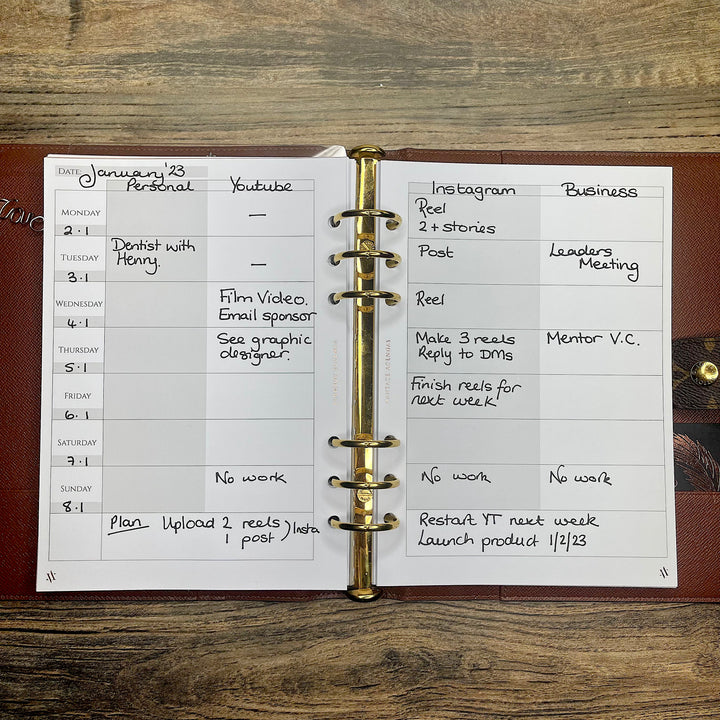 DATE: January '23
Personal Youtube
MONDAY
2.1
—
TUESDAY
3.1
Dentist with
Henry.
—
WEDNESDAY
4.1
Film Video.
Email sponsor
THURSDAY
5.1
See graphic
designer.
FRIDAY
6.1
SATURDAY
7.1
SUNDAY
8.1
No work
Plan Upload 2 reels
1 post ) Insta
Instagram Business
Reel
2 + stories
Post
Leaders
Meeting
Reel
Make 3 reels
Reply to DMs
Mentor V.C.
Finish reels for
next week
No work No work
Restart YT next week
Launch product 1/2/23